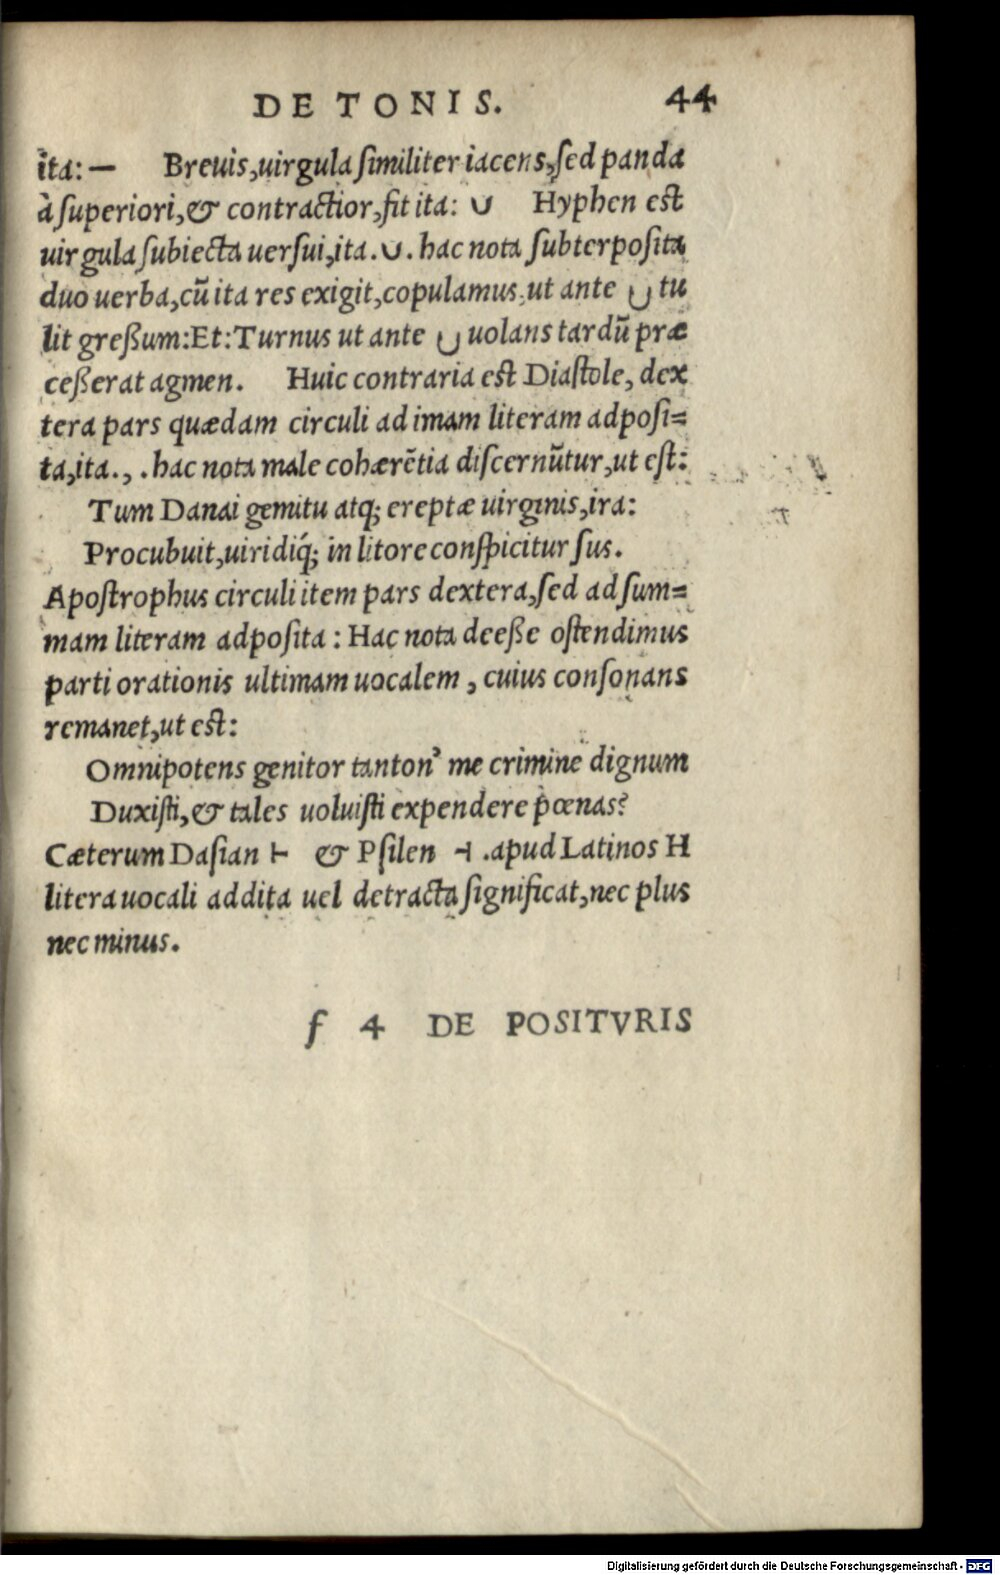 DE TONIS. 44
ita: — Breuis, uirgula similiter iacens, sed panda
à superiori, & contractior, fit ita: ∪ Hyphen est
uirgula subiecta uersui, ita. ∪. hac nota subterposita
duo uerba, cũ ita res exigit, copulamus, ut ante ‿ tu
lit greßum: Et: Turnus ut ante ‿ uolans tardũ præ
ceßerat agmen. Huic contraria est Diastole, dex
tera pars quædam circuli ad imam literam adposi=
ta, ita. , . hac nota male cohærẽtia discernũtur, ut est:
Tum Danai gemitu atq; ereptæ uirginis, ira:
Procubuit, uiridiq́; in litore conspicitur sus.
Apostrophus circuli item pars dextera, sed ad sum=
mam literam adposita: Hac nota deeße ostendimus
parti orationis ultimam uocalem, cuius consonans
remanet, ut est:
Omnipotens genitor tanton’ me crimine dignum
Duxisti, & tales uoluisti expendere pœnas?
Cæterum Dasian ⊢ & Psilen ⊣ . apud Latinos H
litera uocali addita uel detracta significat, nec plus
nec minus.
f 4 DE POSITVRIS
Digitalisierung gefördert durch die Deutsche Forschungsgemeinschaft - DFG